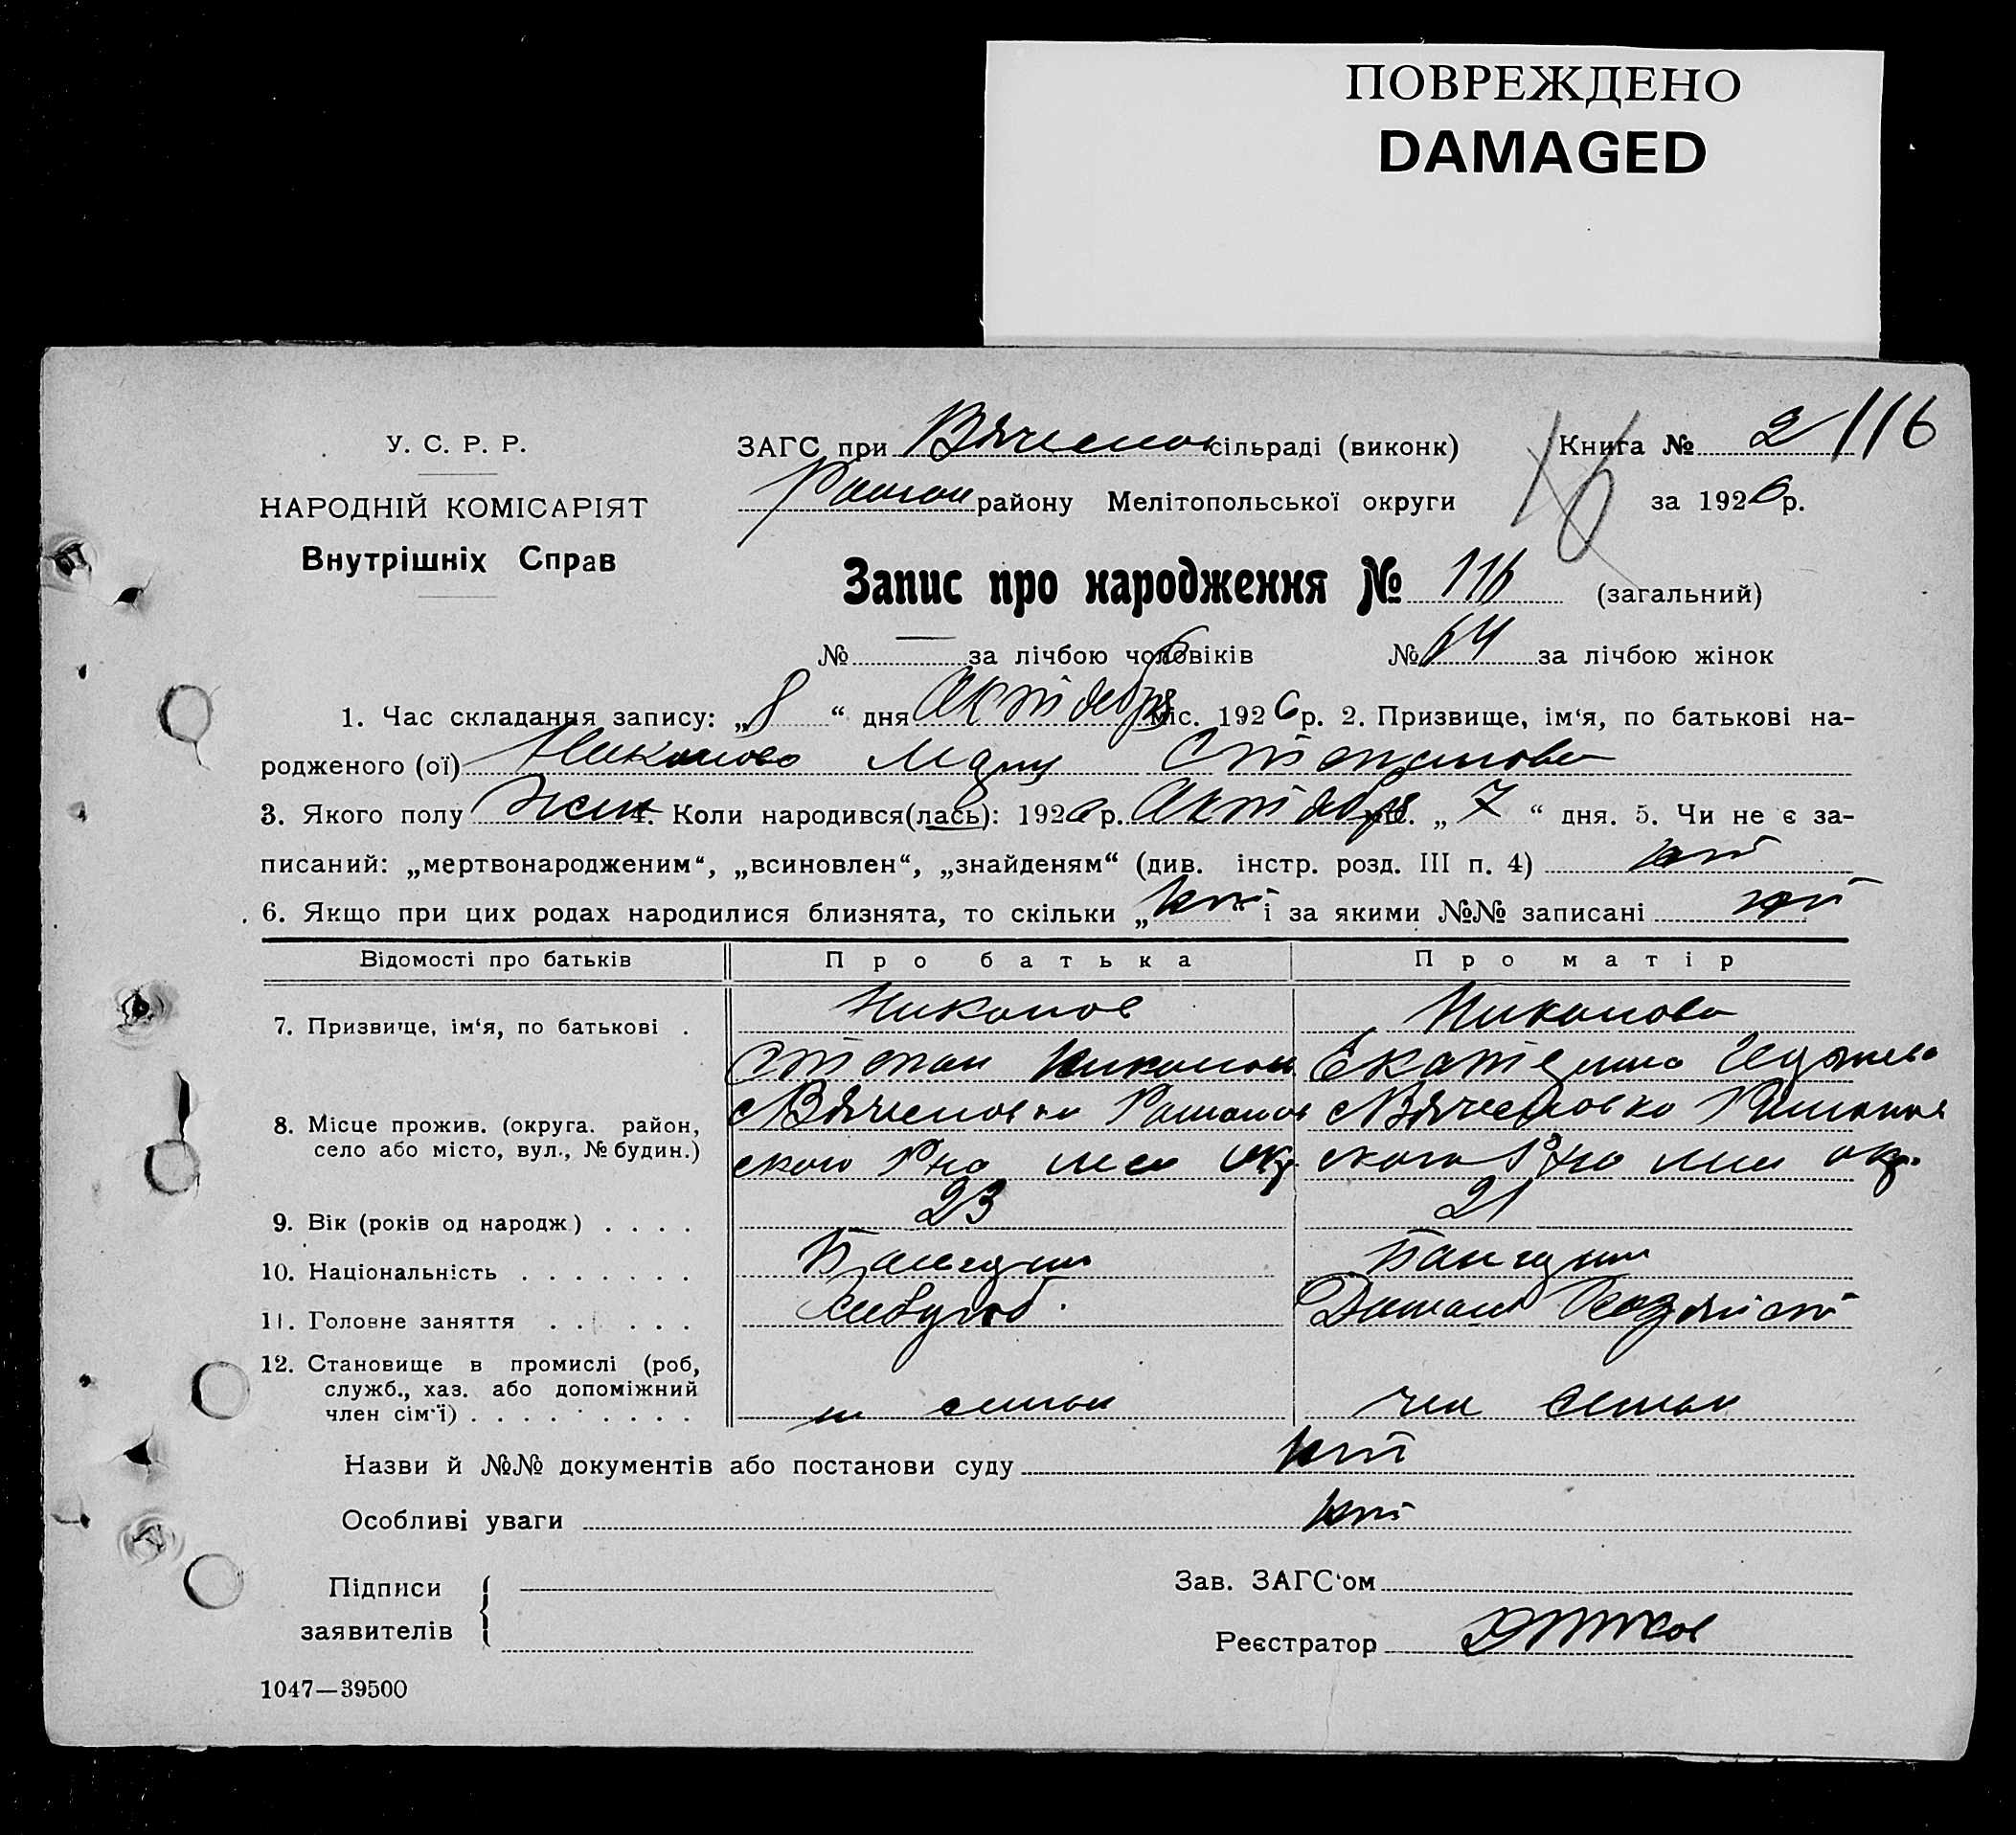 ПОВРЕЖДЕНО
DAMAGED
У. С. Р. Р.
НАРОДНІЙ КОМІСАРІЯТ
Внутрішніх Справ
ЗАГС при Вячеслов сільраді (виконк) Книга № 2 116
Роман району Мелітопольської округи 16 за 1926 р.
Запис про народження № 116 (загальний)
№ — за лічбою чоловіків № 64 за лічбою жінок
1. Час складання запису: „8“ дня Октября міс. 1926 р. 2. Призвище, ім‘я, по батькові на-
родженого (ої) Николова Степанова
3. Якого полу жен 4. Коли народився(лась): 1926 р. Октября міс. „7“ дня. 5. Чи не є за-
писаний: „мертвонародженим“, „всиновлен“, „знайденям“ (див. інстр. розд. III п. 4) нет
6. Якщо при цих родах народилися близнята, то скільки „нет“ і за якими №№ записані нет
Відомості про батьків Про батька Про матір
7. Призвище, ім‘я, по батькові . Николов Николова
Степан Николов Екатерина
8. Місце прожив. (округа. район, с Вячесловка Романов с Вячесловка Романов
село або місто, вул., № будин.) ского Р на мел окр ского Р на мел окр.
9. Вік (років од народж.) . . . . 23 21
10. Національність . . . . . . . Болгарин Болгарин
11. Головне заняття . . . . . . Хлебороб Домаш Хозяйст
12. Становище в промислі (роб,
служб., хаз. або допоміжний
член сім‘ї) . . . . . . . . . чл семьи член семьи
Назви й №№ документів або постанови суду нет
Особливі уваги нет
Підписи
заявителів
Зав. ЗАГС‘ом
Реєстратор
1047—39500